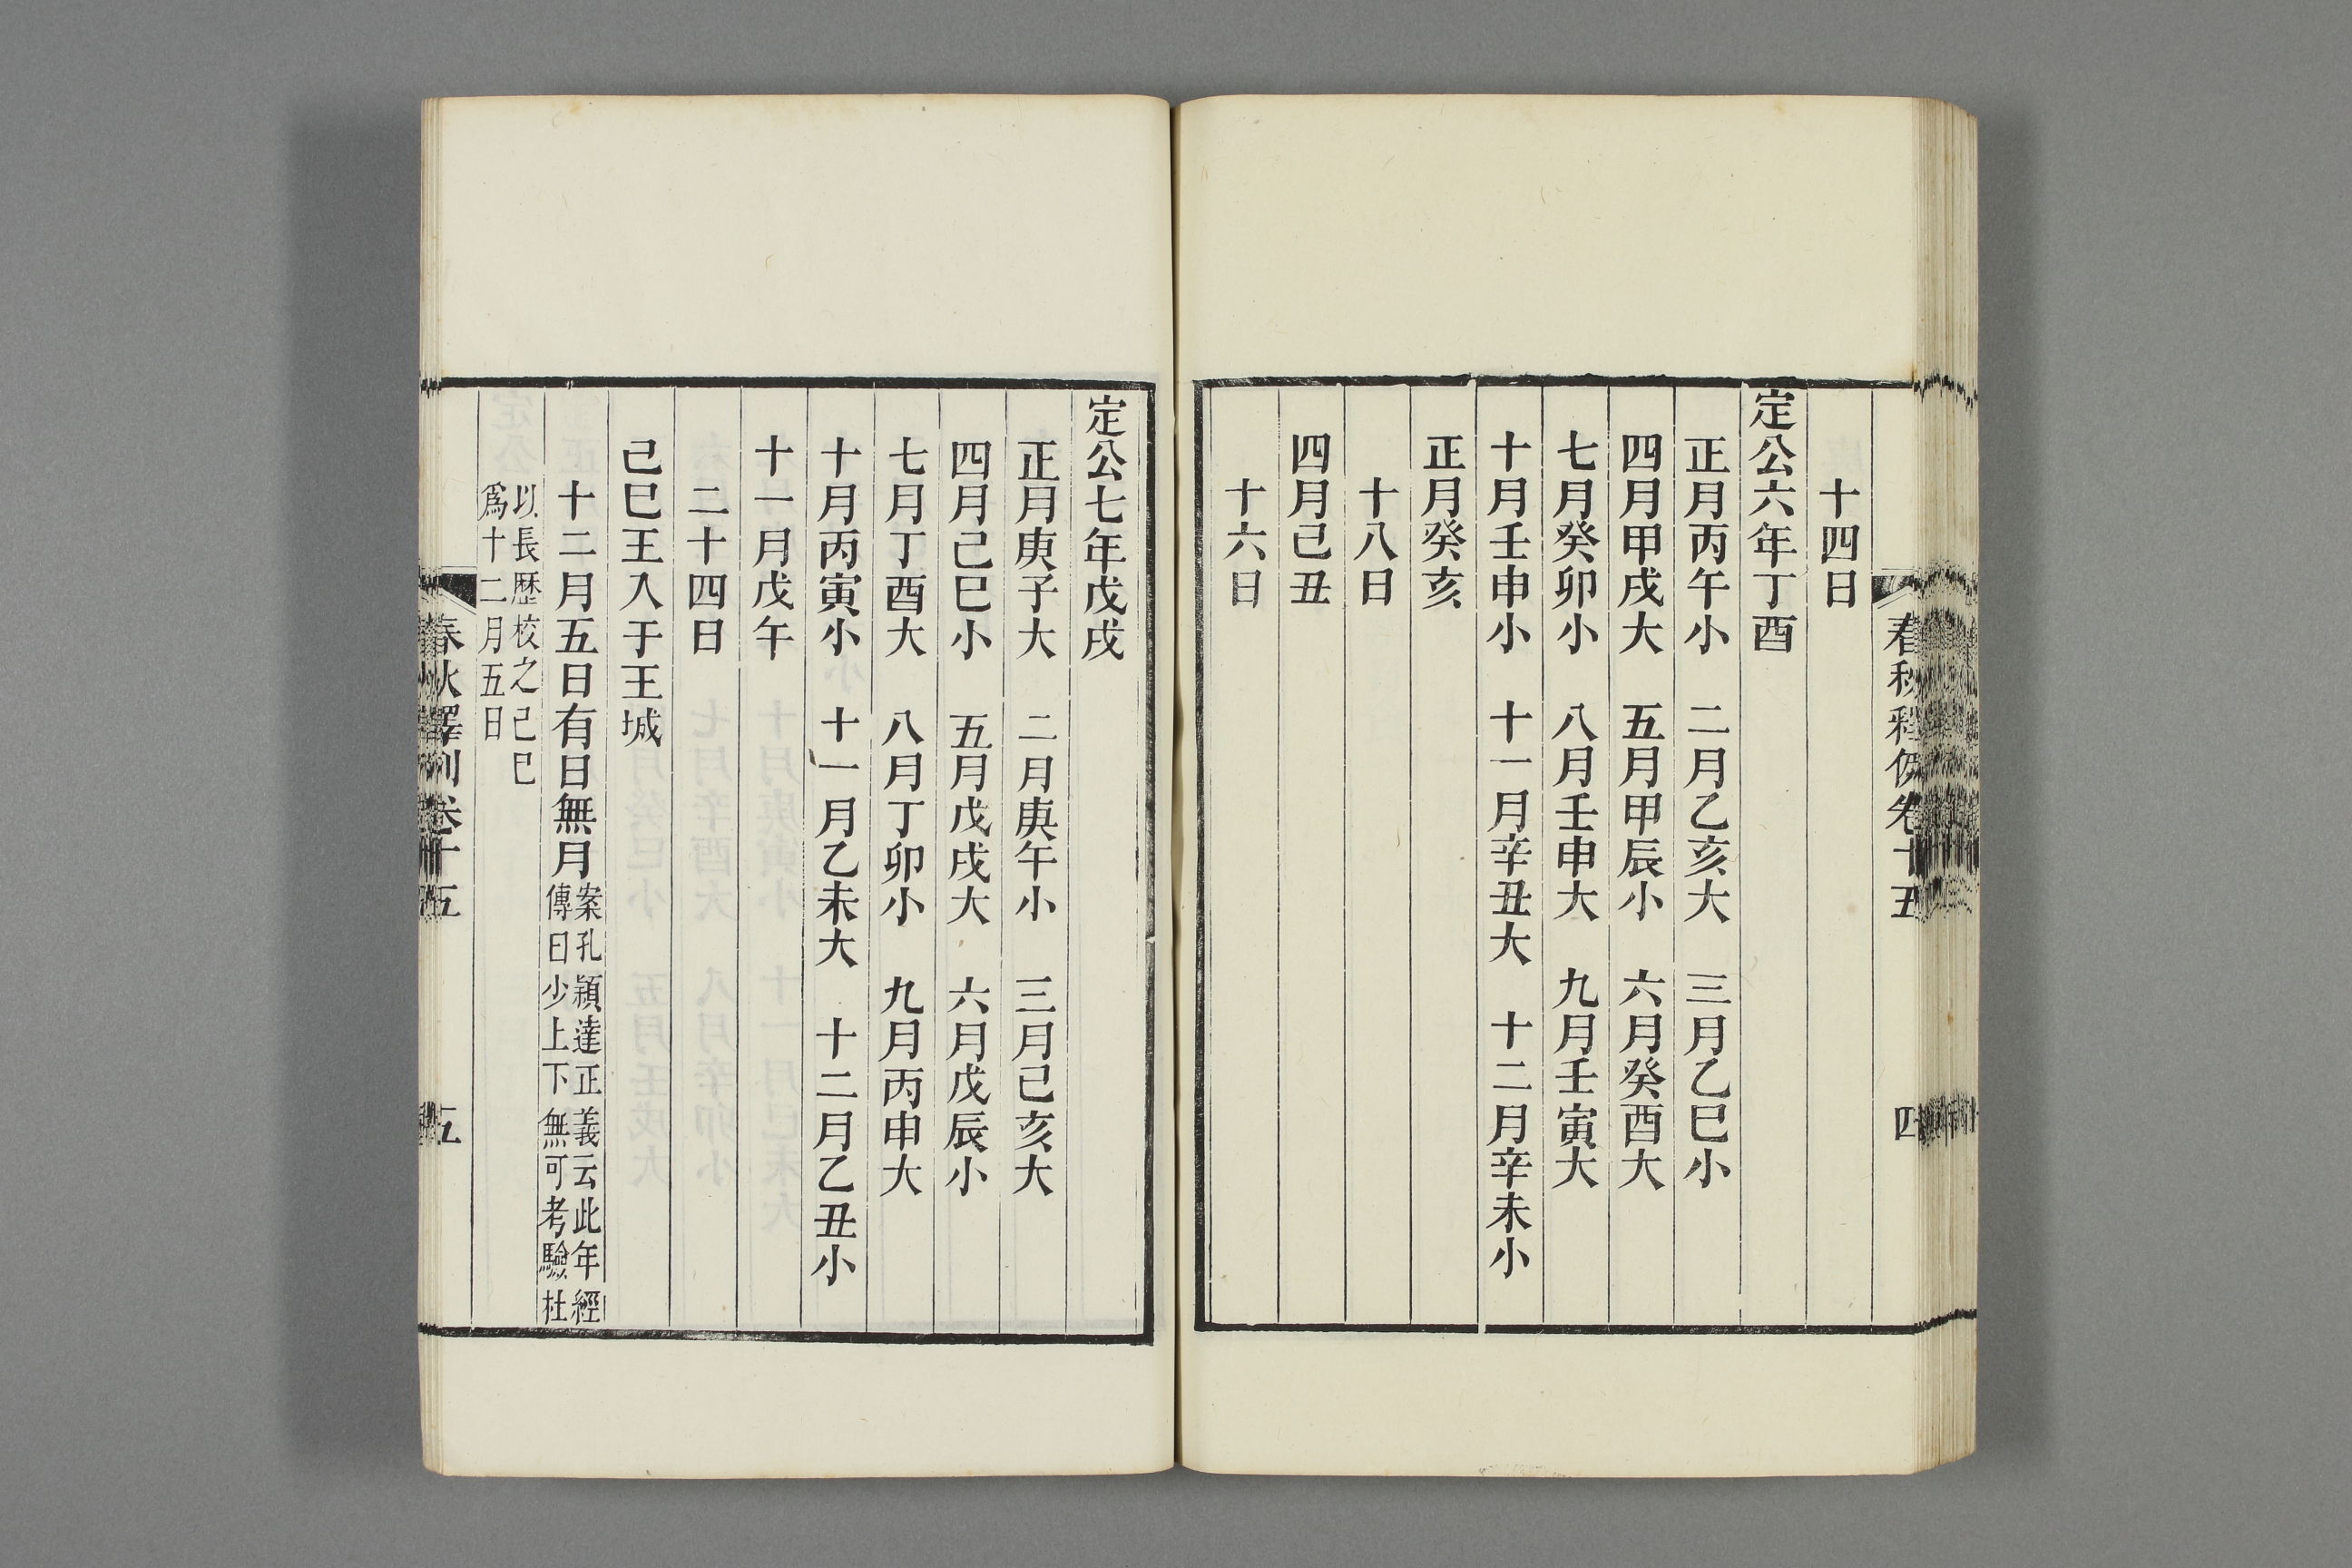 春秋釋例卷十五
四
十四日
定公六年丁酉
正月丙午小　二月乙亥大　三月乙巳小
四月甲戌大　五月甲辰小　六月癸酉大
七月癸卯小　八月壬申大　九月壬寅大
十月壬申小　十一月辛丑大　十二月辛未小
正月癸亥
十八日
四月己丑
十六日
定公七年戊戌
正月庚子大　二月庚午小　三月己亥大
四月己巳小　五月戊戌大　六月戊辰小
七月丁酉大　八月丁卯小　九月丙申大
十月丙寅小　十一月乙未大　十二月乙丑小
十一月戊午
二十四日
己巳王入于王城
十二月五日有日無月案孔穎達正義云此年經
傳日少上下無可考驗杜
以長歷校之己巳
爲十二月五日
春秋釋例卷十五
五